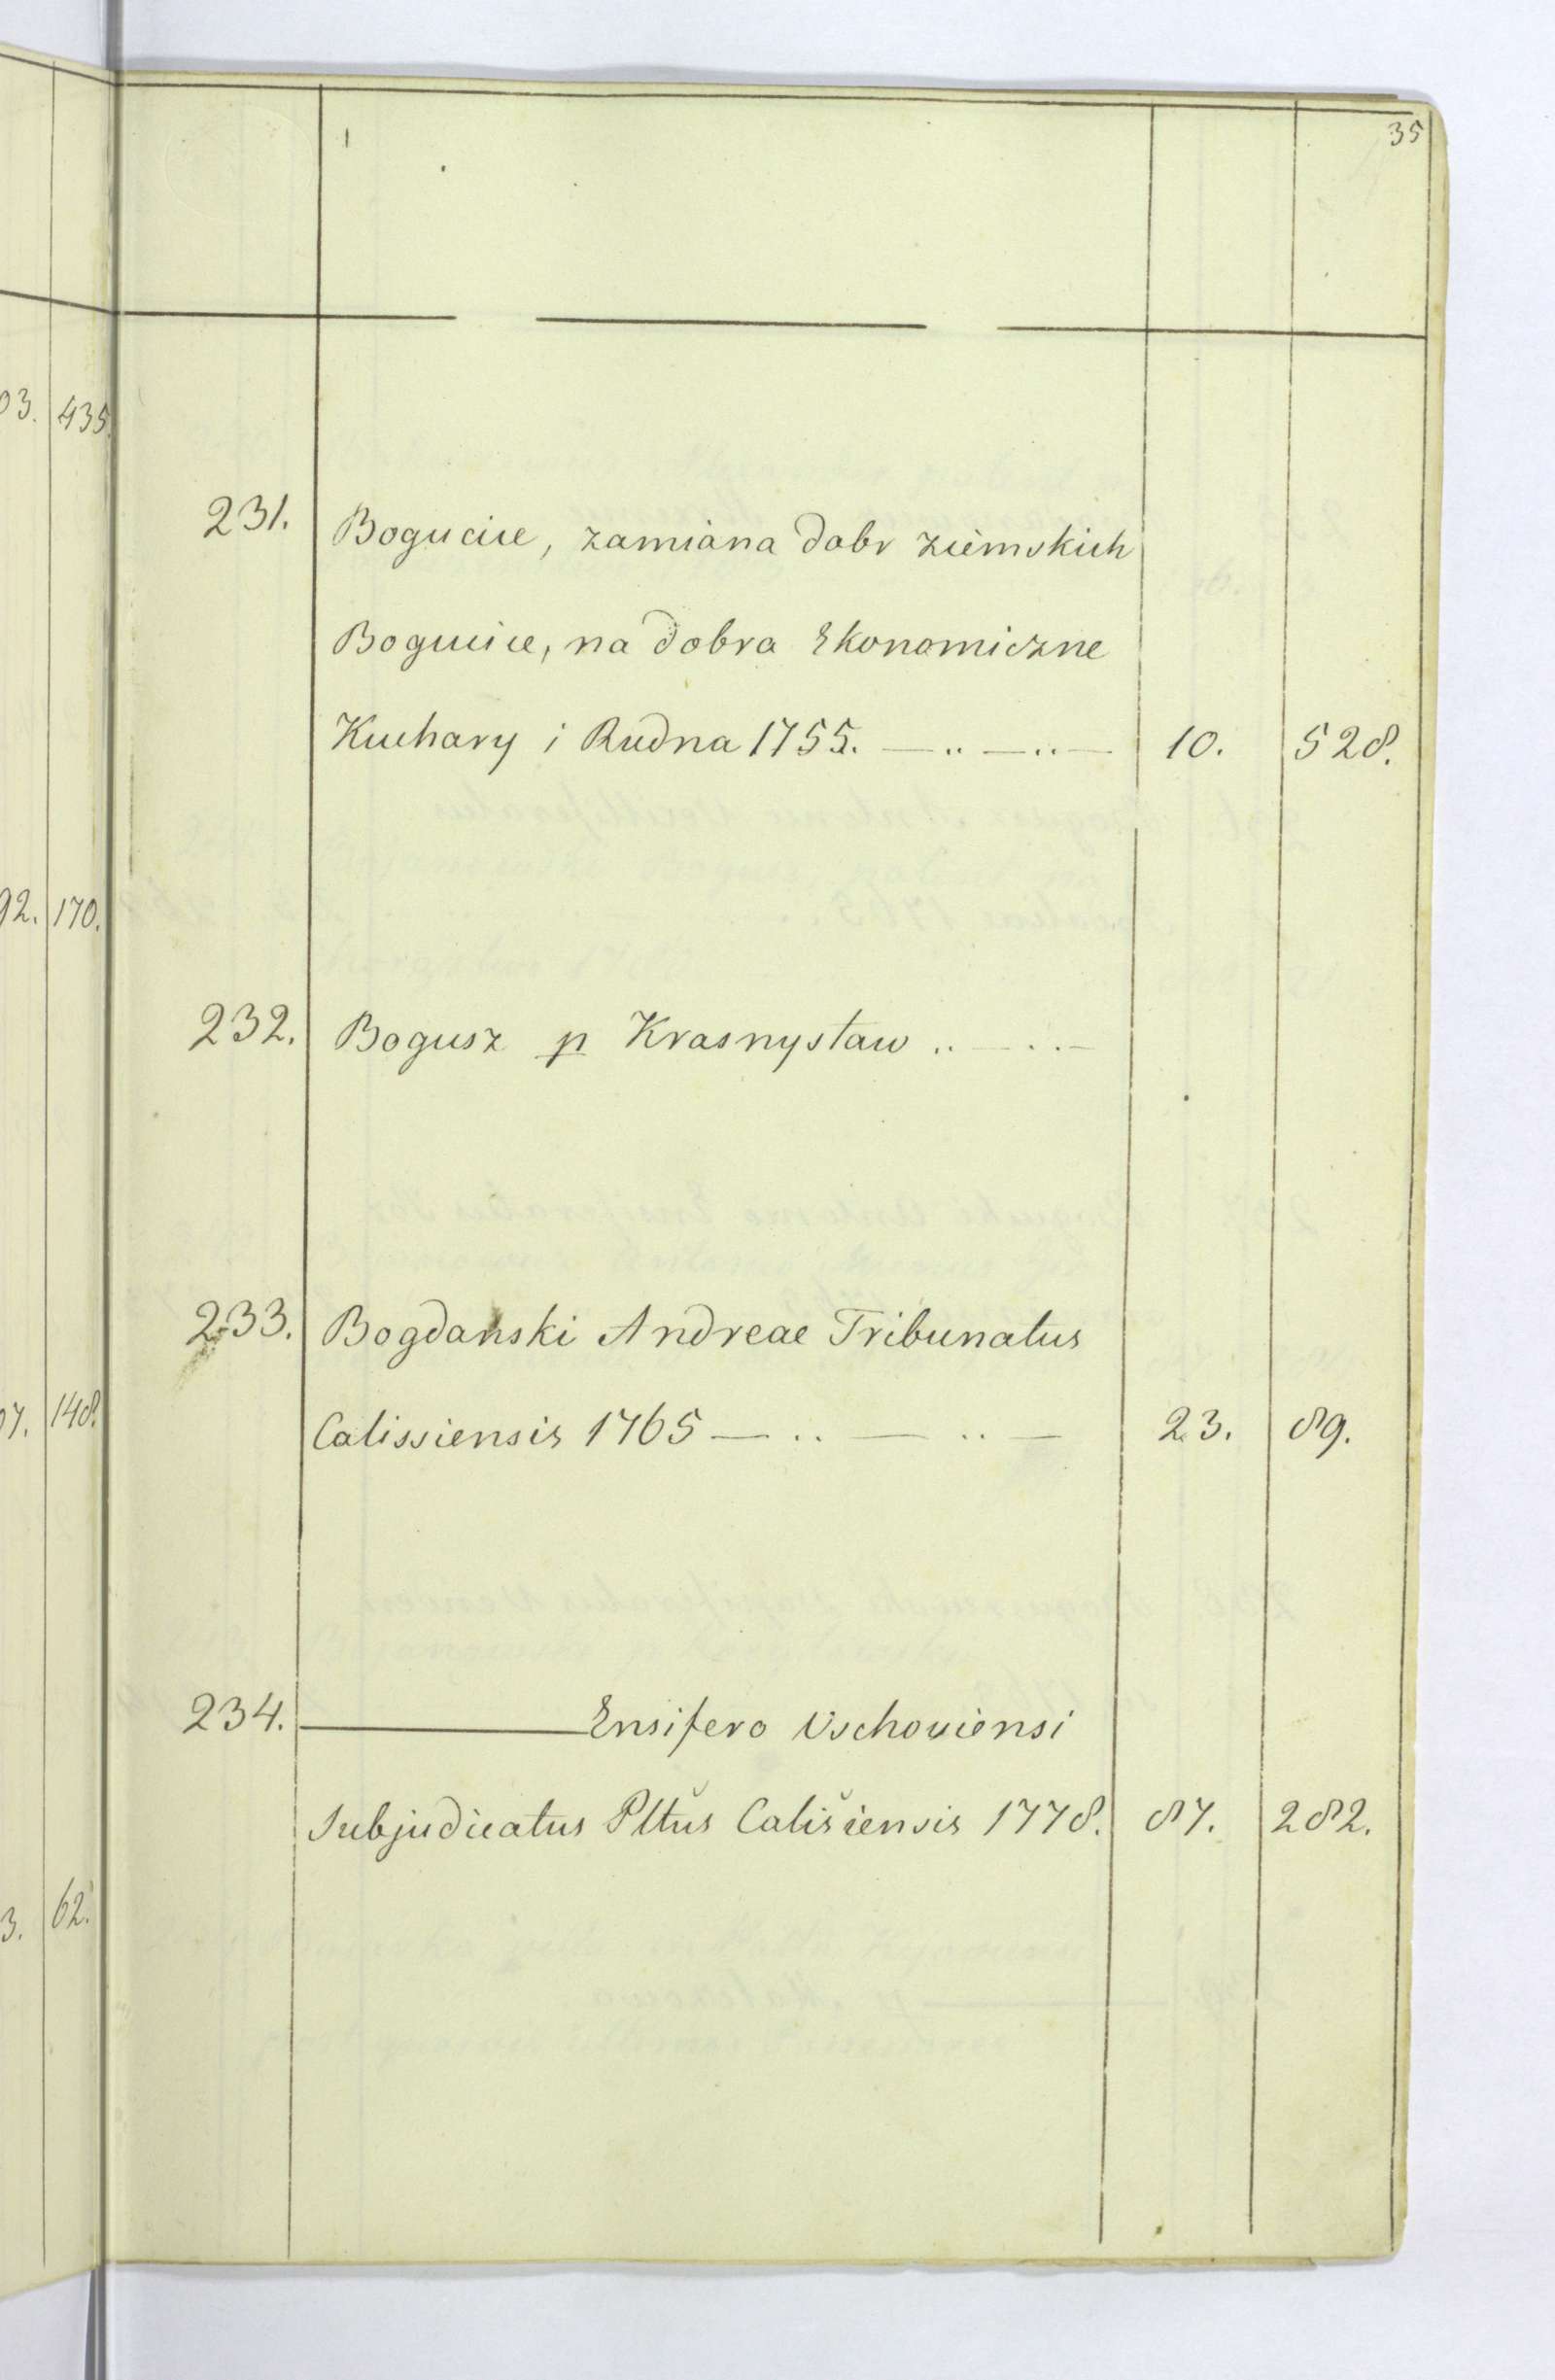 35
03. 435.
231. Bogucice, zamiana dobr ziemskich
Bogucice, na dobra Ekonomiczne
Kuchary i Rudna 1755. — .. — .. — 10. 528.
92. 170.
232. Bogusz p Krasnystaw .. — . . —
233. Bogdanski Andreae Tribunatus
Calissiensis 1765 — .. — .. — 23. 89.
07. 148.
234. ——— Ensifero Vschoviensi
Subjudicatus Pltus Calisiensis 1778. 87. 282.
3. 62.